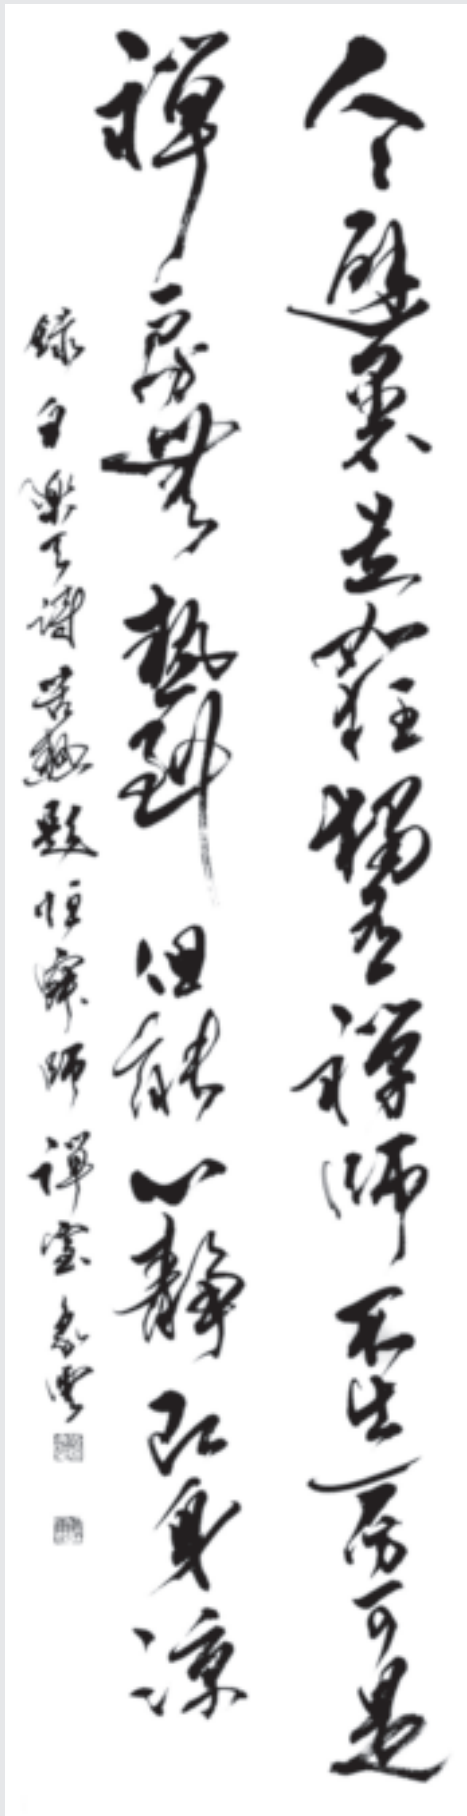 人々避暑走如狂獨有禪師不出房可是
禪房無熱到但能心靜即身涼
錄白樂天詩苦熱題恒寂師禪室